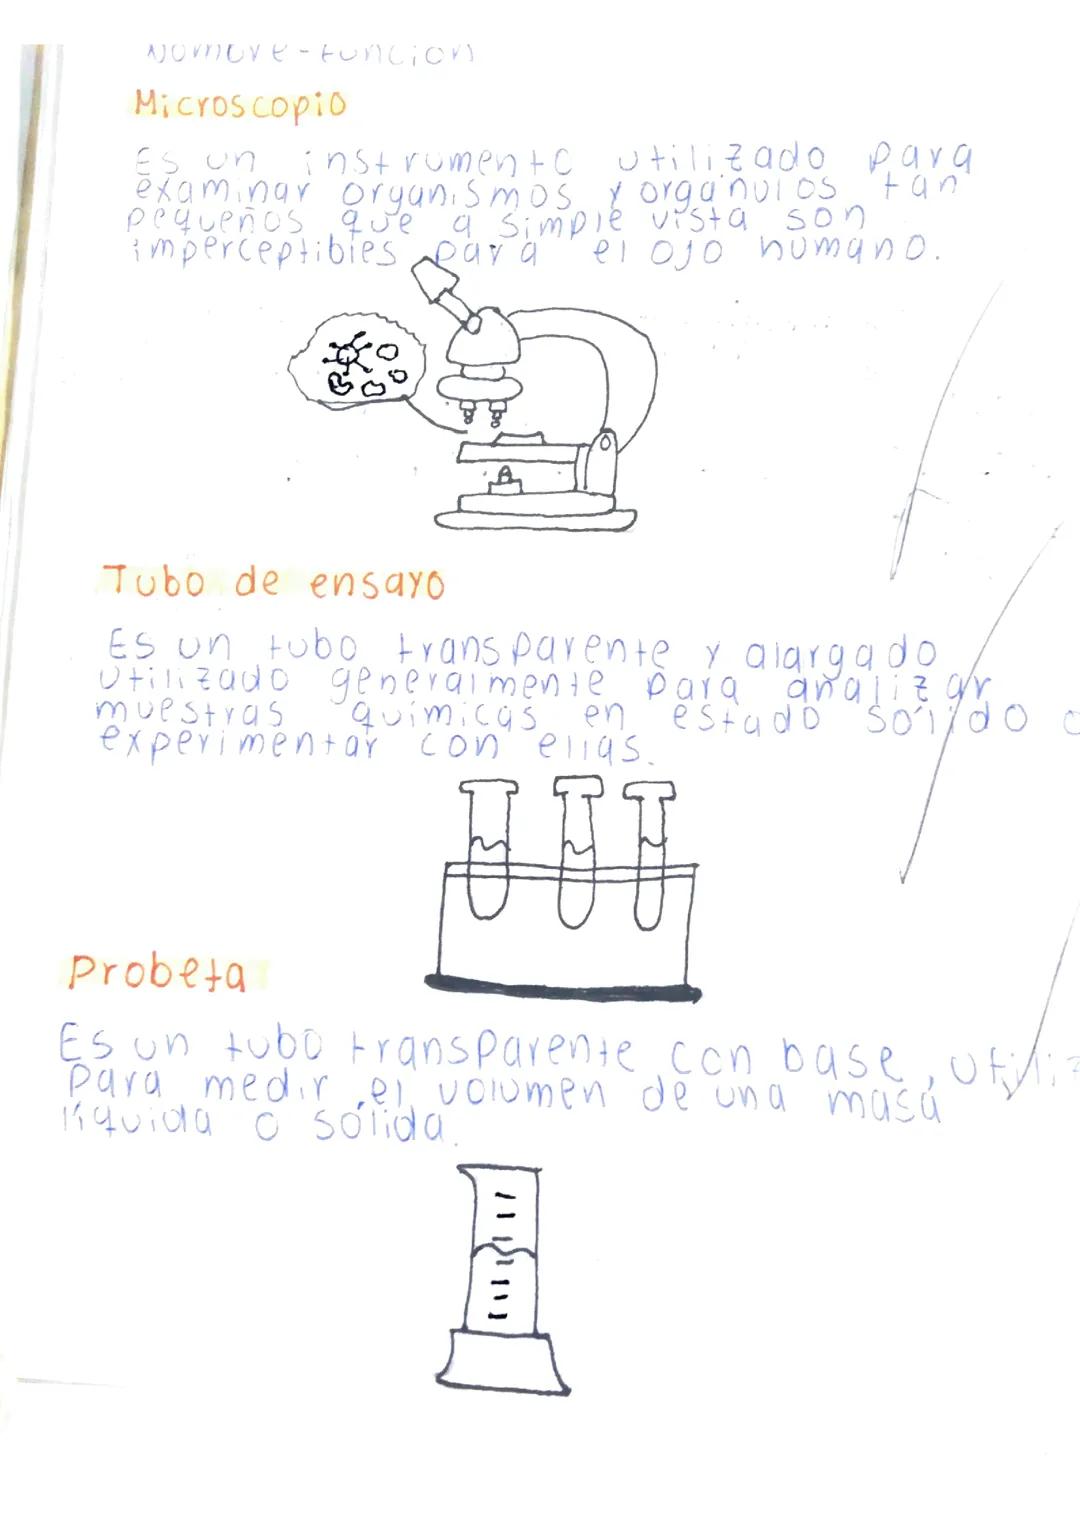 Nombre-función
Microscopio
Es un instrumento utilizado para
examinar organismos y orgánulos tan
pequeños que a simple vista son
imperceptibles para el ojo humano.
Tubo de ensayo
Es un tubo transparente y alargado
utilizado generalmente para analizar
muestras químicas en estado sólido o
experimentar con ellas.
Probeta
Es un tubo transparente con base, utiliz
para medir el volumen de una masa
líquida o sólida.